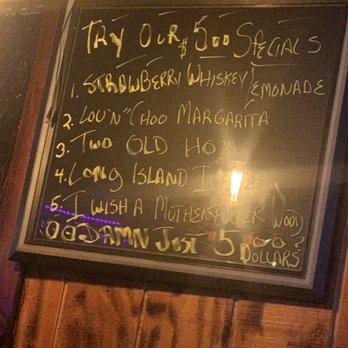 Try Our $5.00 Specials
1. Strawberry Whiskey Lemonade
2. Lou'n"Choo Margarita
3. Two Old Ho's
4. Long Island
5. I wish a Motherfucker Wood)
OO Damn Just 5
Dollars